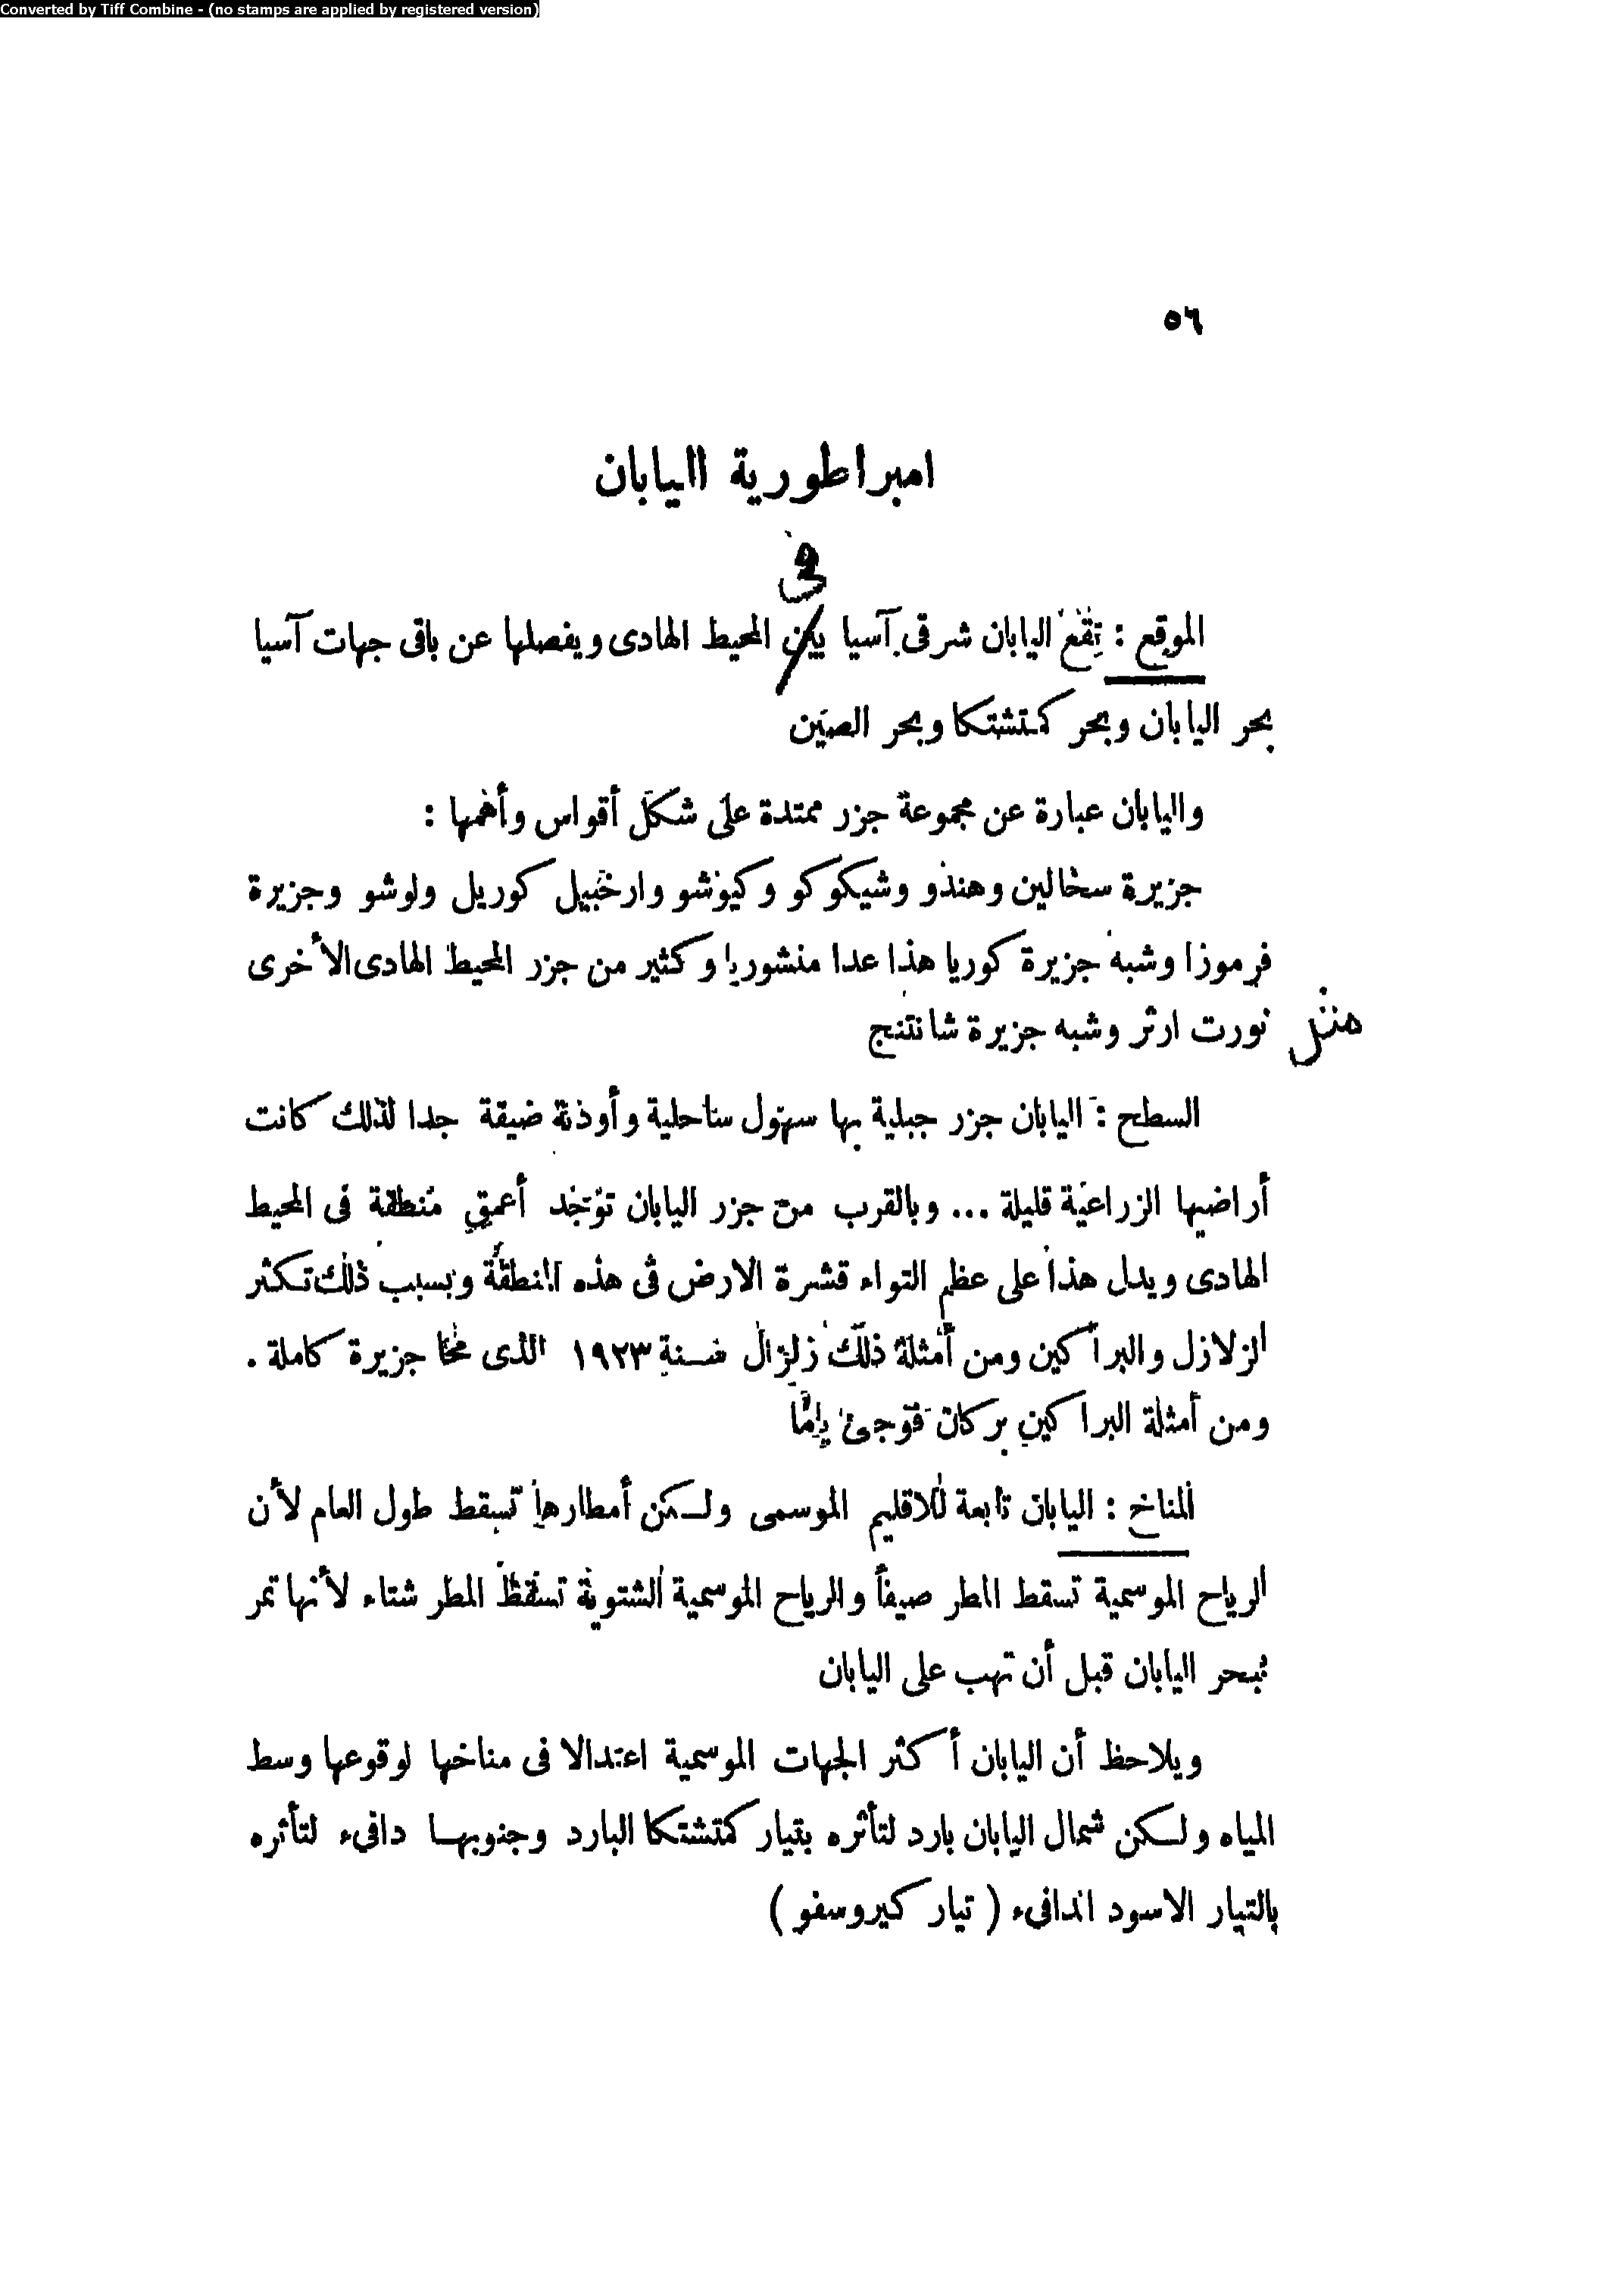 Converted by Tiff Combine - (no stamps are applied by registered version)
٥٦
امبراطورية اليابان
فى
الموقع : تقع اليابان شرقى آسيا بين المحيط الهادى ويفصلها عن باقى جهات آسيا
بحر اليابان وبحر كمتشتكا وبحر الصين
واليابان عبارة عن مجموعة جزر ممتدة على شكل أقواس وأهمها :
جزيرة سخالين وهندو وشيكوكو وكيوشو وارخبيل كوريل ولوشو وجزيرة
فرموزا وشبه جزيرة كوريا هذا عدا منشوريا وكثير من جزر المحيط الهادى الأخرى
مثل نورت ارثر وشبه جزيرة شانتنج
السطح : اليابان جزر جبلية بها سهول ساحلية وأودية ضيقة جدا لذلك كانت
أراضيها الزراعية قليلة ... وبالقرب من جزر اليابان توجد أعمق منطقة فى المحيط
الهادى ويدل هذا على عظم التواء قشرة الارض فى هذه المنطقة وبسبب ذلك تكثر
الزلازل والبراكين ومن أمثلة ذلك زلزال سنة ١٩٢٣ الذى محا جزيرة كاملة .
ومن أمثلة البراكين بركان فوجى ياما
المناخ : اليابان تابعة للاقليم الموسمى ولكن أمطارها تسقط طول العام لأن
الرياح الموسمية تسقط المطر صيفاً والرياح الموسمية الشتوية تسقط المطر شتاء لأنها تمر
ببحر اليابان قبل أن تهب على اليابان
ويلاحظ أن اليابان أكثر الجهات الموسمية اعتدالا فى مناخها لوقوعها وسط
المياه ولكن شمال اليابان بارد لتأثره بتيار كمتشتكا البارد وجنوبها دافىء لتأثره
بالتيار الاسود الدافىء ( تيار كيروسفو )